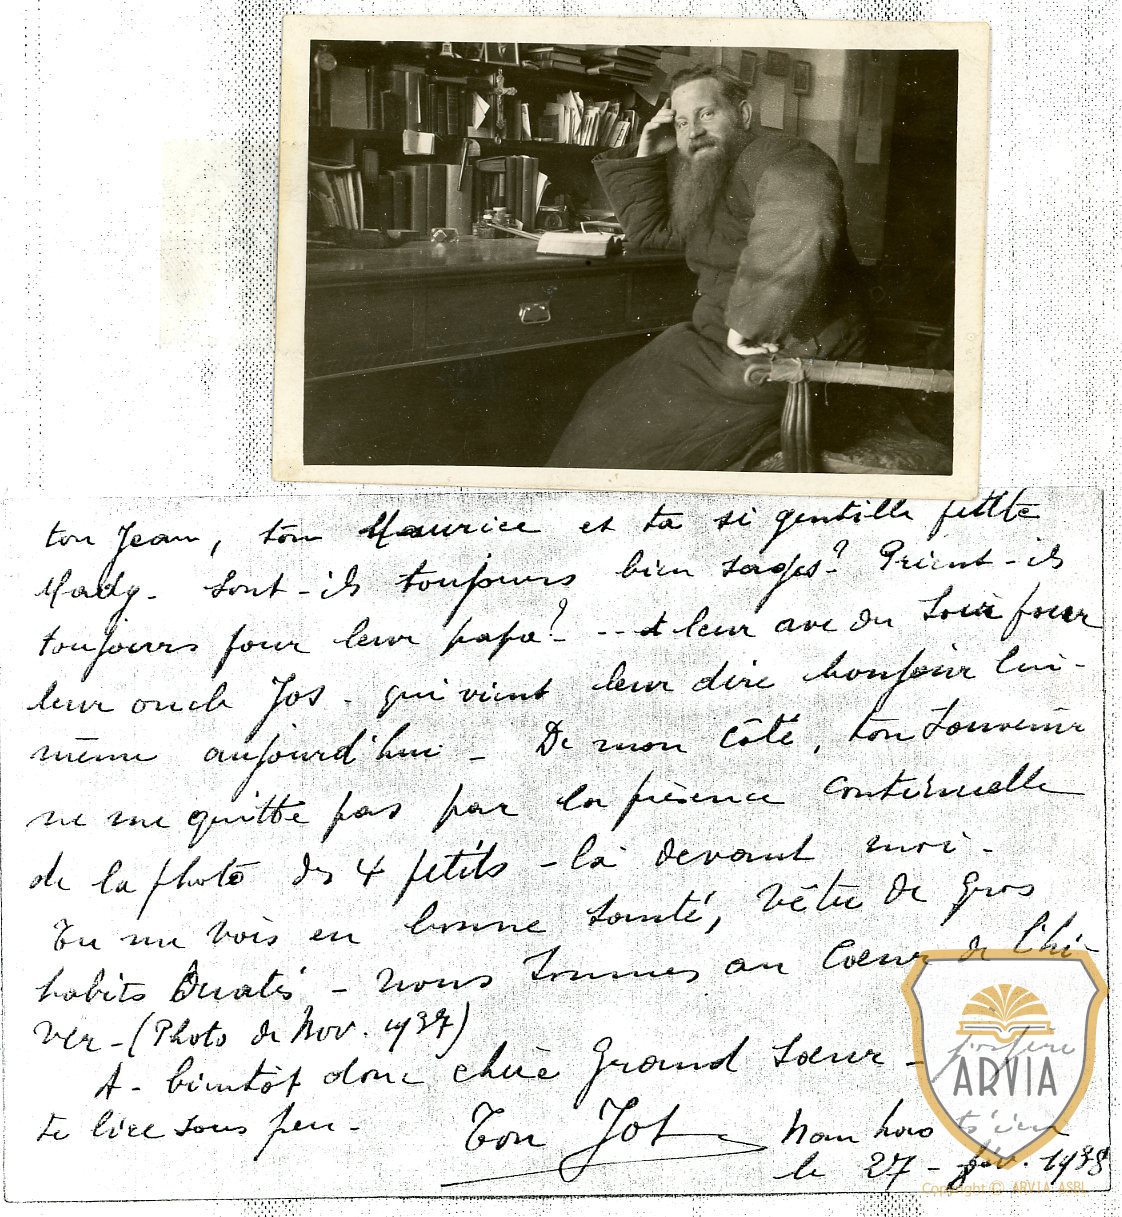 ton Jean, ton Maurice et ta si gentille petite
Mady - sont-ils toujours bien sages? Prient-ils
toujours pour leur papa? - ... et leur ave du soir pour
leur oncle Jos - qui vient leur dire bonjour lui-
même aujourd'hui - De mon côté, ton souvenir
ne me quitte pas par la présence continuelle
de la photo des 4 petits - là devant moi -
Tu me vois en bonne santé, vêtu de gros
habits ouatés - nous sommes au coeur de l'hi-
ver - (Photo de Nov. 1937)
A - bientôt donc chère Grand Soeur -
te lire sous peu -
Ton Jos
le 27 - 1938
ARVIA
Copyright © ARVIA ASBL